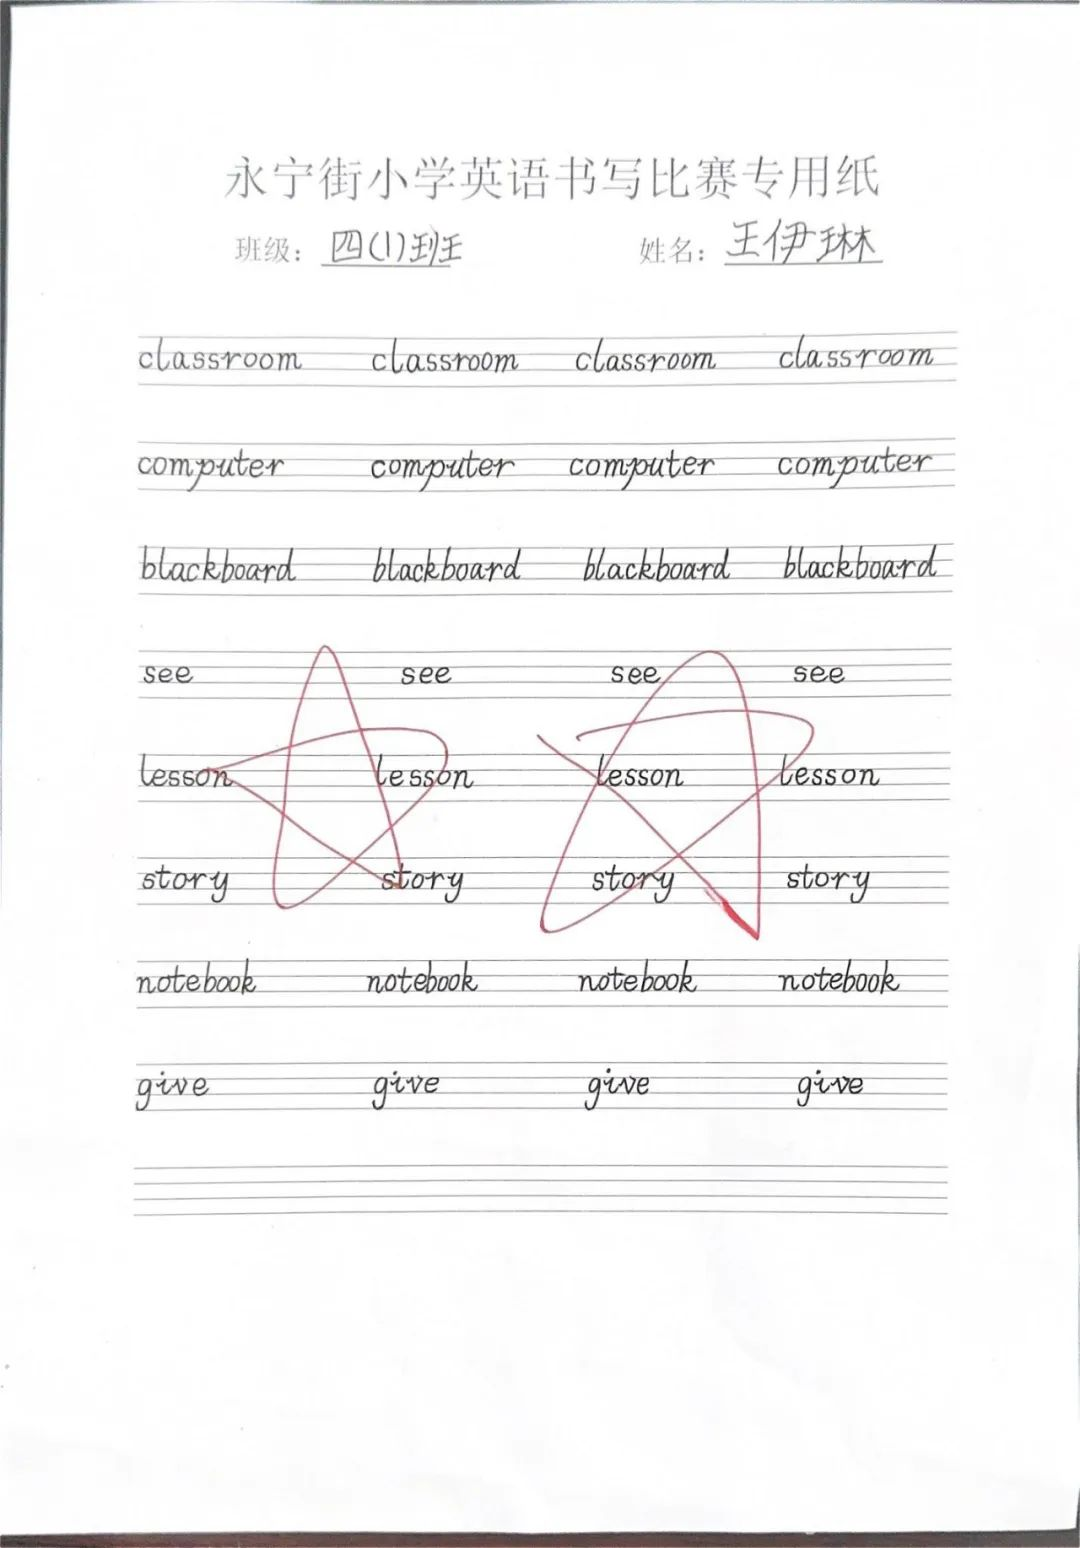 永宁街小学英语书写比赛专用纸
班级：四(1)班 姓名：王伊琳
classroom classroom classroom classroom
computer computer computer computer
blackboard blackboard blackboard blackboard
see see see see
lesson lesson lesson lesson
story story story story
notebook notebook notebook notebook
give give give give